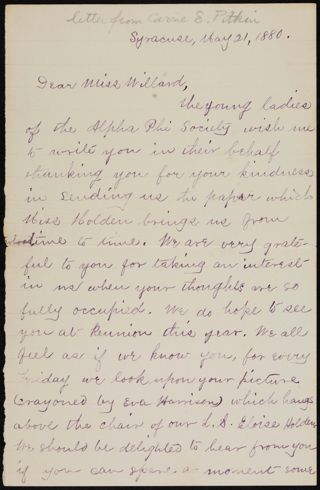 letter from Carrie E. Pitkin
Syracuse, May 21, 1880.
Dear Miss Willard,
The young ladies
of the Alpha Phi Society wish me
to write you in their behalf
thanking you for your kindness
in sending us the paper which
Miss Holden brings us from
time to time. We are very grate-
ful to you for taking an interest
in us when your thoughts are so
fully occupied. We do hope to see
you at Reunion this year. We all
feel as if we know you, for every
Friday we look upon your picture
(crayoned by Eva Harrison) which hangs
above the chair of our L. S. Eloise Holden
We should be delighted to hear from you
if you can spare a moment some